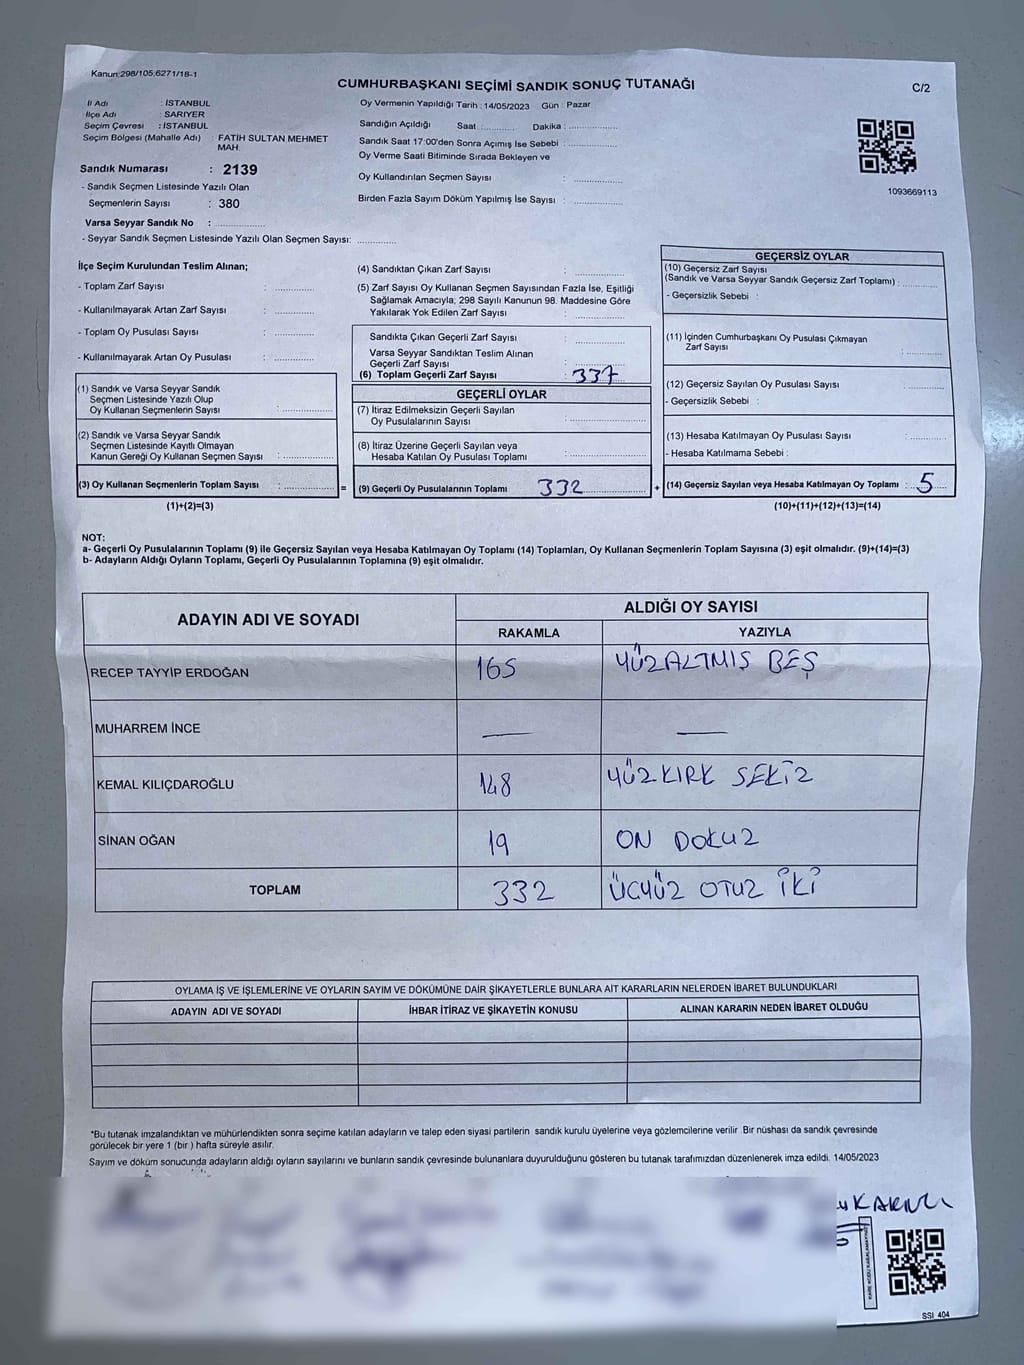 Kanun:298/105,6271/18-1
CUMHURBAŞKANI SEÇİMİ SANDIK SONUÇ TUTANAĞI
C/2
İl Adı : İSTANBUL
İlçe Adı : SARIYER
Seçim Çevresi : İSTANBUL
Seçim Bölgesi (Mahalle Adı) : FATİH SULTAN MEHMET
MAH.
Sandık Numarası : 2139
- Sandık Seçmen Listesinde Yazılı Olan
Seçmenlerin Sayısı : 380
Varsa Seyyar Sandık No : ..............
- Seyyar Sandık Seçmen Listesinde Yazılı Olan Seçmen Sayısı: ............
Oy Vermenin Yapıldığı Tarih : 14/05/2023 Gün : Pazar
Sandığın Açıldığı Saat :........... Dakika :...............
Sandık Saat 17:00'den Sonra Açımış İse Sebebi :...............
Oy Verme Saati Bitiminde Sırada Bekleyen ve
Oy Kullandırılan Seçmen Sayısı : ...............
Birden Fazla Sayım Döküm Yapılmış İse Sayısı : ...............
1093669113
İlçe Seçim Kurulundan Teslim Alınan;
- Toplam Zarf Sayısı : ............
- Kullanılmayarak Artan Zarf Sayısı : ............
- Toplam Oy Pusulası Sayısı : ............
- Kullanılmayarak Artan Oy Pusulası : ............
(1) Sandık ve Varsa Seyyar Sandık
Seçmen Listesinde Yazılı Olup
Oy Kullanan Seçmenlerin Sayısı : ...............
(2) Sandık ve Varsa Seyyar Sandık
Seçmen Listesinde Kayıtlı Olmayan
Kanun Gereği Oy Kullanan Seçmen Sayısı : ...............
(3) Oy Kullanan Seçmenlerin Toplam Sayısı : ...............
(1)+(2)=(3)
(4) Sandıktan Çıkan Zarf Sayısı : ...............
(5) Zarf Sayısı Oy Kullanan Seçmen Sayısından Fazla İse, Eşitliği
Sağlamak Amacıyla; 298 Sayılı Kanunun 98. Maddesine Göre
Yakılarak Yok Edilen Zarf Sayısı : ...............
Sandıkta Çıkan Geçerli Zarf Sayısı : ...............
Varsa Seyyar Sandıktan Teslim Alınan
Geçerli Zarf Sayısı : ...............
(6) Toplam Geçerli Zarf Sayısı : 337
GEÇERLİ OYLAR
(7) İtiraz Edilmeksizin Geçerli Sayılan
Oy Pusulalarının Sayısı : ...............
(8) İtiraz Üzerine Geçerli Sayılan veya
Hesaba Katılan Oy Pusulası Toplamı : ...............
= (9) Geçerli Oy Pusulalarının Toplamı 332
GEÇERSİZ OYLAR
(10) Geçersiz Zarf Sayısı
(Sandık ve Varsa Seyyar Sandık Geçersiz Zarf Toplamı) : ............
- Geçersizlik Sebebi :
(11) İçinden Cumhurbaşkanı Oy Pusulası Çıkmayan
Zarf Sayısı : ............
(12) Geçersiz Sayılan Oy Pusulası Sayısı : ............
- Geçersizlik Sebebi :
(13) Hesaba Katılmayan Oy Pusulası Sayısı : ............
- Hesaba Katılmama Sebebi :
+ (14) Geçersiz Sayılan veya Hesaba Katılmayan Oy Toplamı : 5
(10)+(11)+(12)+(13)=(14)
NOT:
a- Geçerli Oy Pusulalarının Toplamı (9) ile Geçersiz Sayılan veya Hesaba Katılmayan Oy Toplamı (14) Toplamları, Oy Kullanan Seçmenlerin Toplam Sayısına (3) eşit olmalıdır. (9)+(14)=(3)
b- Adayların Aldığı Oyların Toplamı, Geçerli Oy Pusulalarının Toplamına (9) eşit olmalıdır.
ADAYIN ADI VE SOYADI
ALDIĞI OY SAYISI
RAKAMLA YAZIYLA
RECEP TAYYİP ERDOĞAN 165 YÜZALTMIŞ BEŞ
MUHARREM İNCE — —
KEMAL KILIÇDAROĞLU 148 YÜZKIRK SEKİZ
SİNAN OĞAN 19 ON DOKUZ
TOPLAM 332 ÜÇYÜZ OTUZ İKİ
OYLAMA İŞ VE İŞLEMLERİNE VE OYLARIN SAYIM VE DÖKÜMÜNE DAİR ŞİKAYETLERLE BUNLARA AİT KARARLARIN NELERDEN İBARET BULUNDUKLARI
ADAYIN ADI VE SOYADI İHBAR İTİRAZ VE ŞİKAYETİN KONUSU ALINAN KARARIN NEDEN İBARET OLDUĞU
*Bu tutanak imzalandıktan ve mühürlendikten sonra seçime katılan adayların ve talep eden siyasi partilerin sandık kurulu üyelerine veya gözlemcilerine verilir. Bir nüshası da sandık çevresinde
görülecek bir yere 1 (bir ) hafta süreyle asılır.
Sayım ve döküm sonucunda adayların aldığı oyların sayılarını ve bunların sandık çevresinde bulunanlara duyurulduğunu gösteren bu tutanak tarafımızdan düzenlenerek imza edildi. 14/05/2023
SSI 404